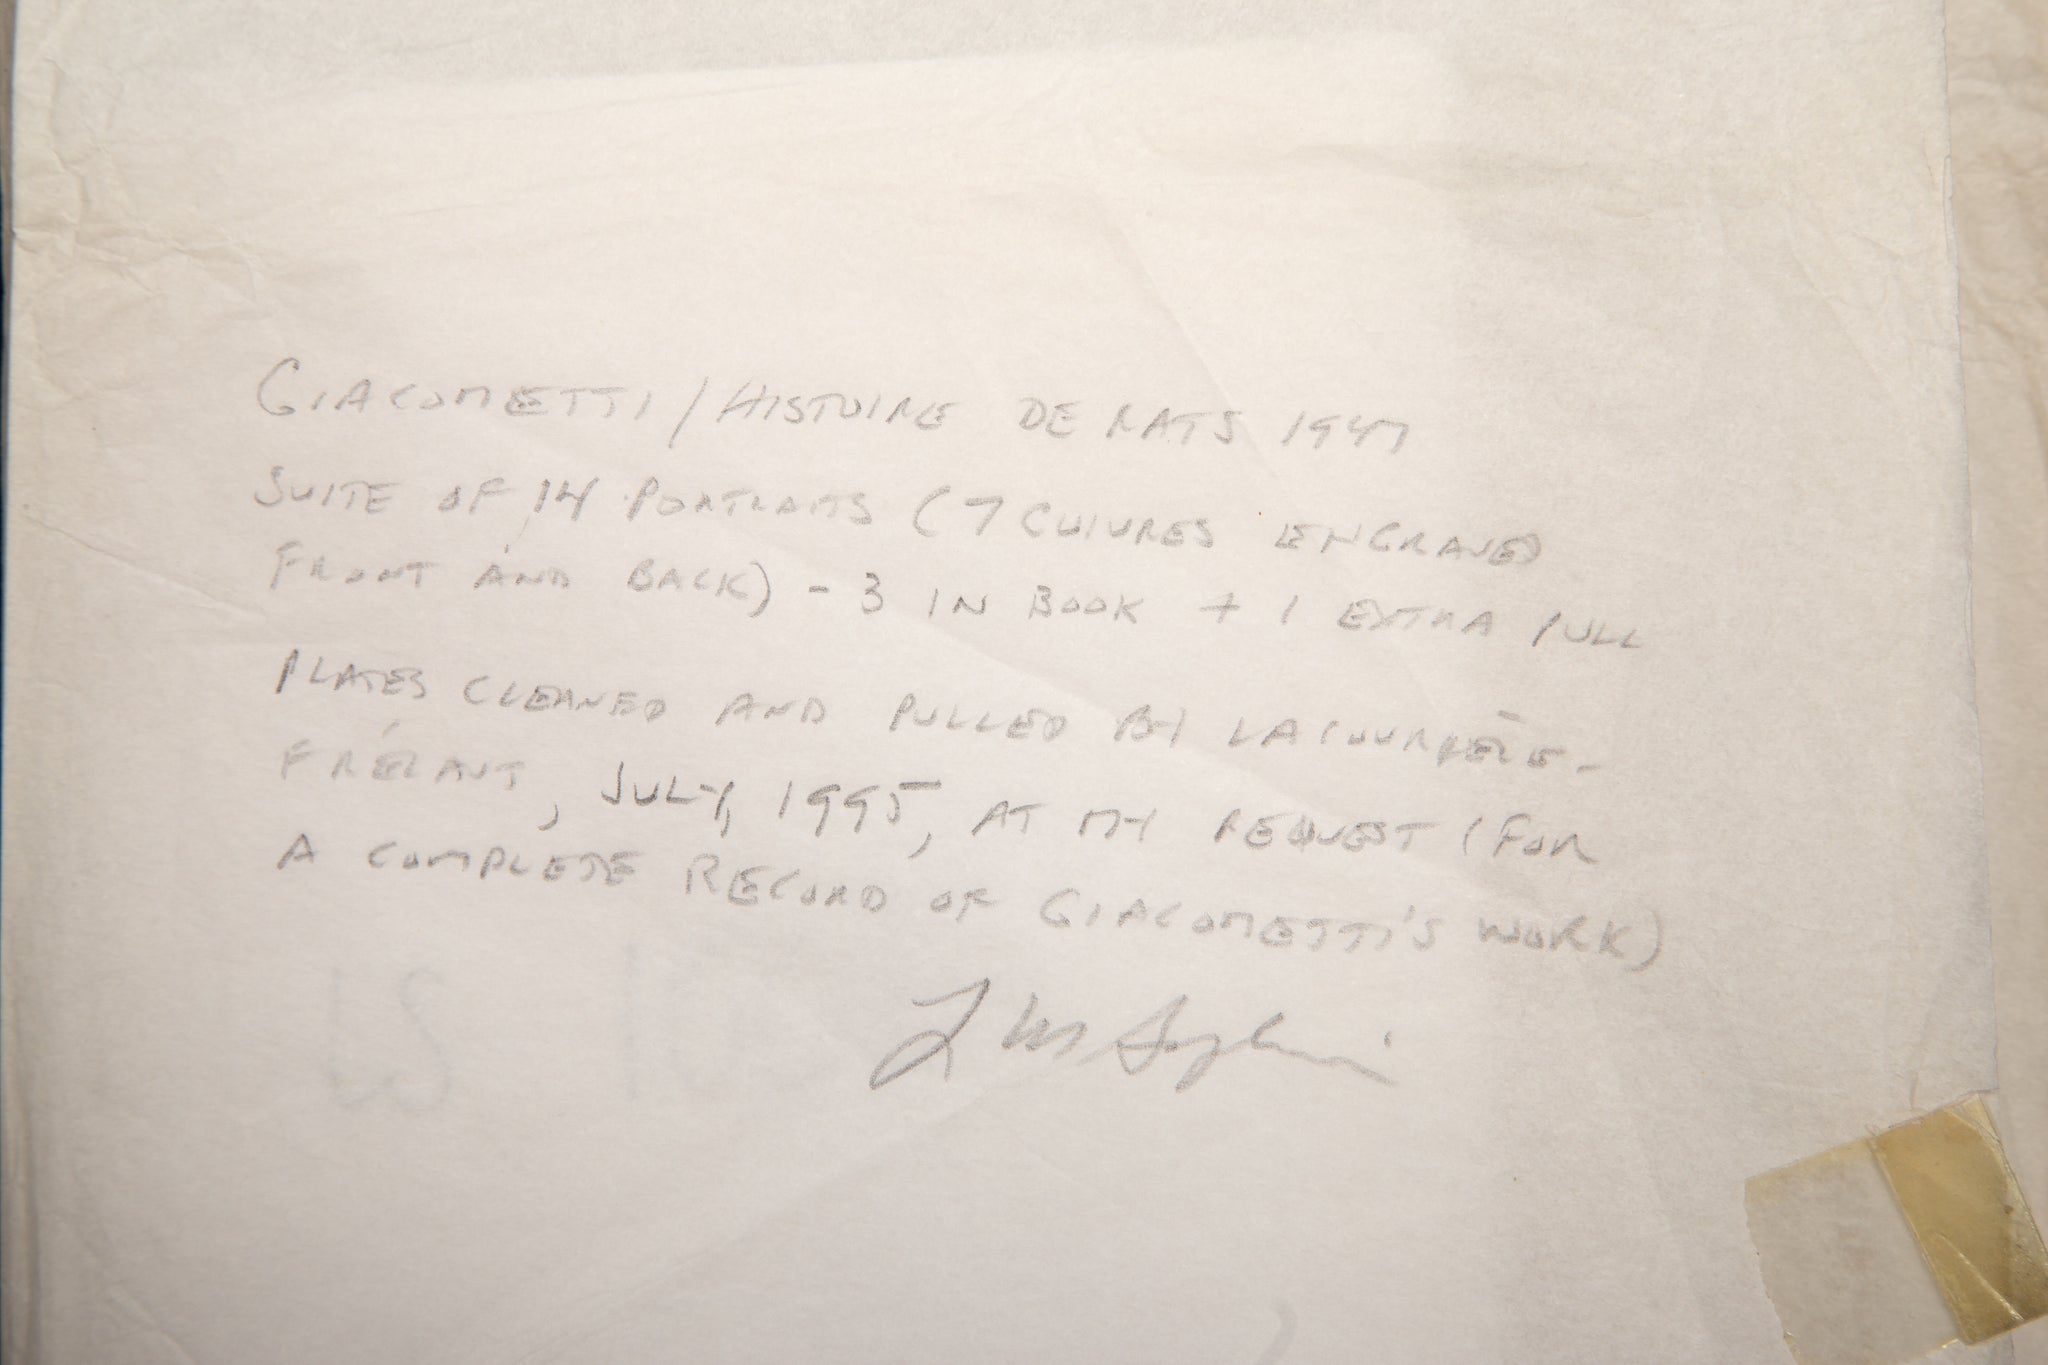 GIACOMETTI / HISTOIRE DE RATS 1947
SUITE OF 14 PORTRAITS (7 CUIVRES ENGRAVED
FRONT AND BACK) - 3 IN BOOK + 1 EXTRA PULL
PLATES CLEANED AND PULLED BY LACOURIÈRE-
FRÉLAUT, JULY, 1995, AT MY REQUEST (FOR
A COMPLETE RECORD OF GIACOMETTI'S WORK)